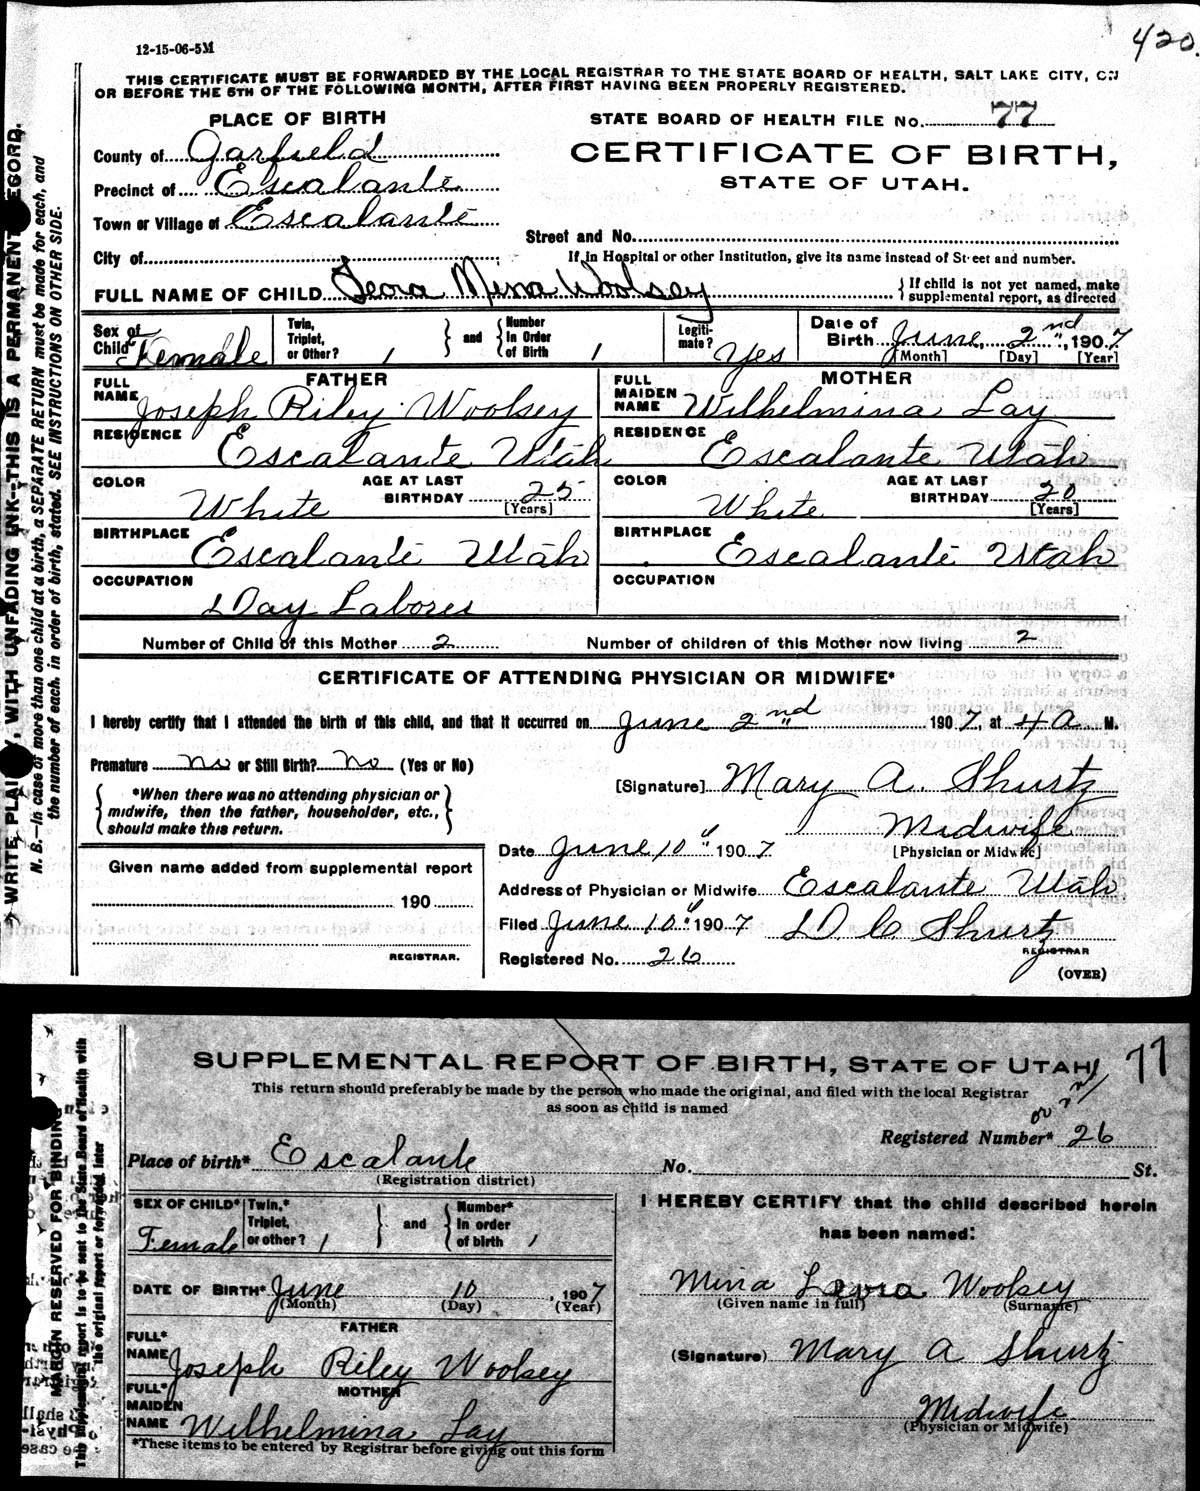 420.
12-15-06-5M
THIS CERTIFICATE MUST BE FORWARDED BY THE LOCAL REGISTRAR TO THE STATE BOARD OF HEALTH, SALT LAKE CITY, ON
OR BEFORE THE 5TH OF THE FOLLOWING MONTH, AFTER FIRST HAVING BEEN PROPERLY REGISTERED.
PLACE OF BIRTH
STATE BOARD OF HEALTH FILE No. 77
County of Garfield
CERTIFICATE OF BIRTH,
Precinct of Escalante
STATE OF UTAH.
Town or Village of Escalante
Street and No.
City of
If in Hospital or other Institution, give its name instead of Street and number.
FULL NAME OF CHILD Leora Mina Woolsey
If child is not yet named, make
supplemental report, as directed
Sex of Child Female
Twin, Triplet, or Other? 1
and
Number In Order of Birth 1
Legitimate? Yes
Date of Birth June 2nd, 1907
[Month] [Day] [Year]
FATHER
FULL NAME Joseph Riley Woolsey
MOTHER
FULL MAIDEN NAME Wilhelmina Lay
RESIDENCE Escalante Utah
RESIDENCE Escalante Utah
COLOR White
AGE AT LAST BIRTHDAY 25
[Years]
COLOR White
AGE AT LAST BIRTHDAY 20
[Years]
BIRTHPLACE Escalante Utah
BIRTHPLACE Escalante Utah
OCCUPATION Day Laborer
OCCUPATION
Number of Child of this Mother 2
Number of children of this Mother now living 2
CERTIFICATE OF ATTENDING PHYSICIAN OR MIDWIFE*
I hereby certify that I attended the birth of this child, and that it occurred on June 2nd 1907, at 4 A M.
Premature no or Still Birth? No (Yes or No)
*When there was no attending physician or
midwife, then the father, householder, etc.,
should make this return.
[Signature] Mary A. Shurtz
Midwife
[Physician or Midwife]
Date June 10" 1907
Given name added from supplemental report
190
REGISTRAR.
Address of Physician or Midwife Escalante Utah
Filed June 10" 1907 D C Shurtz
REGISTRAR
Registered No. 26
(OVER)
WRITE PLAINLY, WITH UNFADING INK--THIS IS A PERMANENT RECORD.
N. B.--In case of more than one child at a birth, a SEPARATE RETURN must be made for each, and
the number of each, in order of birth, stated. SEE INSTRUCTIONS ON OTHER SIDE.
SUPPLEMENTAL REPORT OF BIRTH, STATE OF UTAH
77
This return should preferably be made by the person who made the original, and filed with the local Registrar
as soon as child is named
or 2nd
Registered Number* 26
Place of birth* Escalante No. St.
(Registration district)
SEX OF CHILD* Female
Twin,* Triplet, or other? 1
and
Number* In order of birth 1
DATE OF BIRTH* June 10, 1907
(Month) (Day) (Year)
FATHER
FULL* NAME Joseph Riley Woolsey
MOTHER
FULL* MAIDEN NAME Wilhelmina Lay
*These items to be entered by Registrar before giving out this form
I HEREBY CERTIFY that the child described herein
has been named:
Mina Leora Woolsey
(Given name in full) (Surname)
(Signature) Mary A Shurtz
Midwife
(Physician or Midwife)
MARGIN RESERVED FOR BINDING
This supplemental report is to be sent to the State Board of Health with
the original report or forwarded later